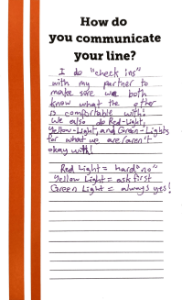 How do
you communicate
your line?
I do "check ins"
with my partner to
make sure we both
know what the other
is comfortable with.
We also do Red-Light,
Yellow-Light, and Green-Lights
for what we are/aren't
okay with!
Red Light = hard "no"
Yellow Light = ask first
Green Light = always yes!